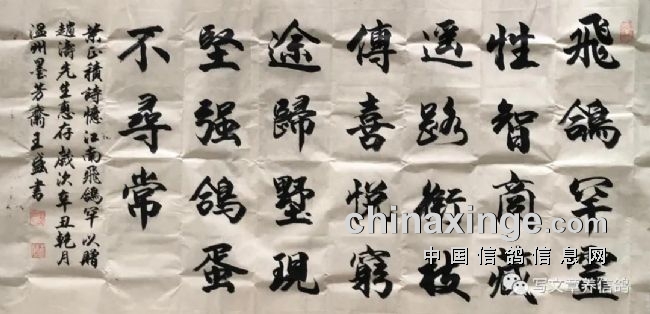 飛鴿罕靈
性智商藏
遥路銜枝
傳喜悦窮
途歸墅現
堅强鴿蛋
不尋常
葉正積詩憶江南飛鴿罕以贈
趙濤先生惠存歲次辛丑艳月
温州墨芳齋王書
chinaxinge.com
中国信鸽信息网
写文章养信鸽